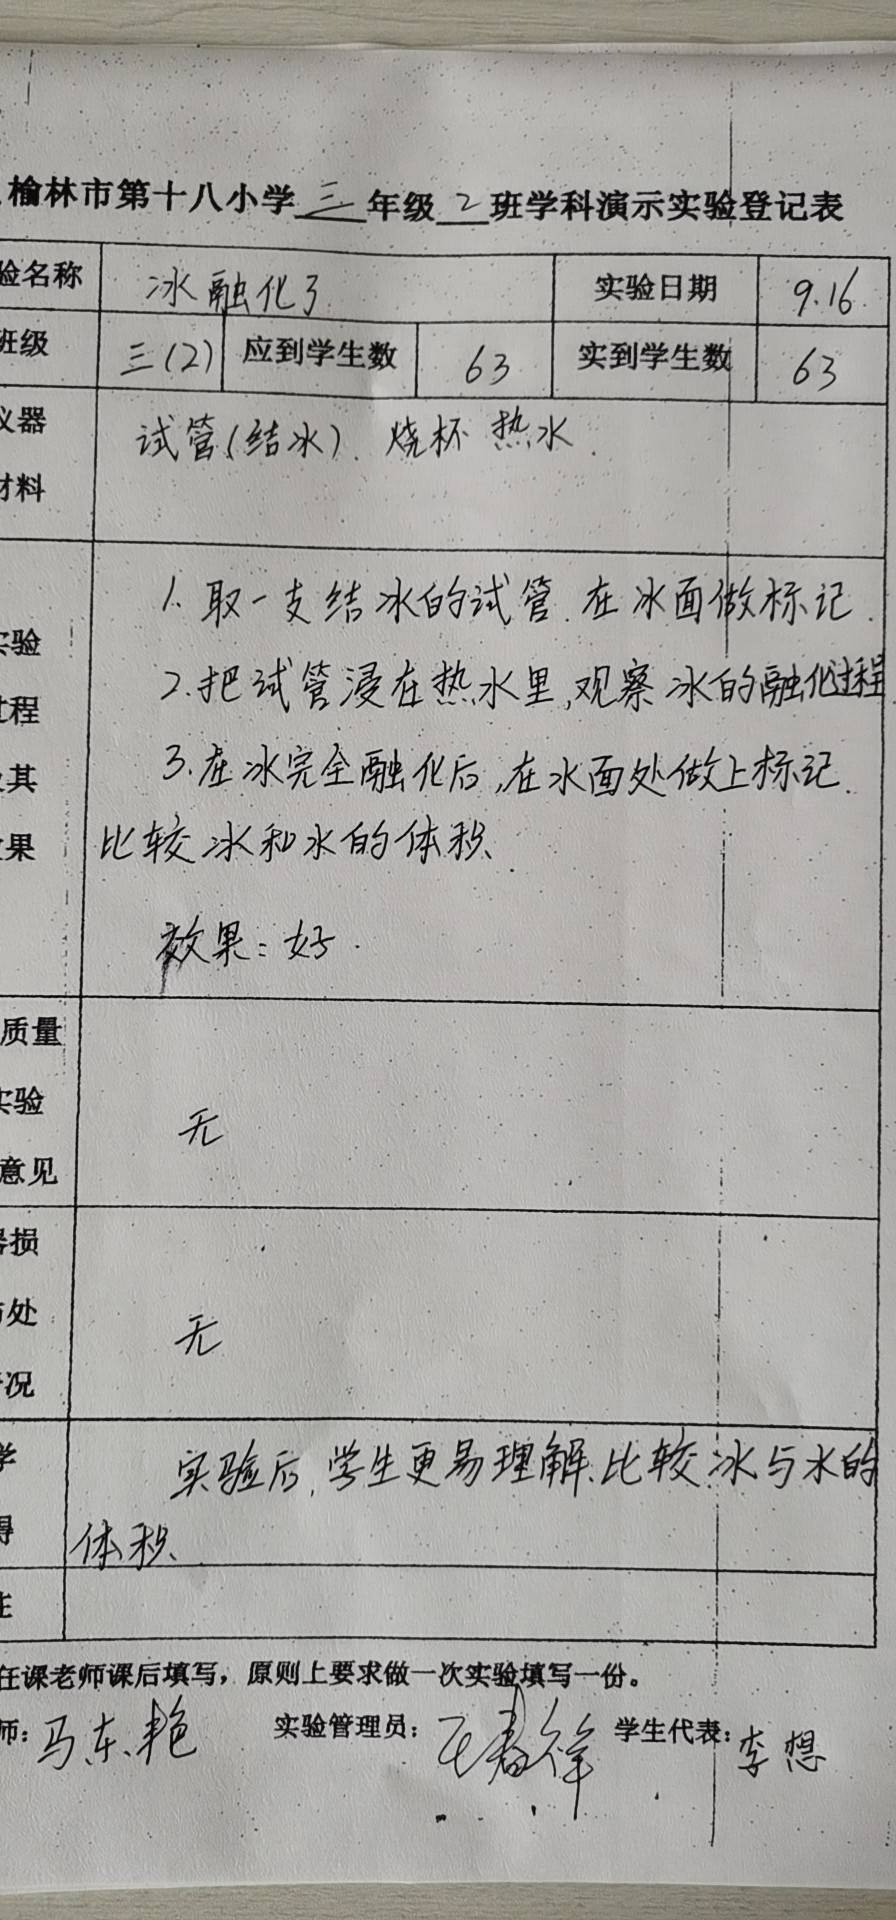 榆林市第十八小学三年级2班学科演示实验登记表
验名称 冰融化了 实验日期 9.16
班级 三(2) 应到学生数 63 实到学生数 63
仪器 试管(结冰)、烧杯 热水.
材料
1. 取一支结冰的试管.在冰面做标记.
实验
2.把试管浸在热水里,观察冰的融化过程
过程
3.在冰完全融化后,在水面处做上标记.
及其
比较冰和水的体积、
效果
效果:好.
质量
实验
无
意见
器损
处
无
情况
学 实验后,学生更易理解、比较冰与水的
得 体积、
注
任课老师课后填写，原则上要求做一次实验填写一份。
师: 马东艳 实验管理员: 学生代表: 李想